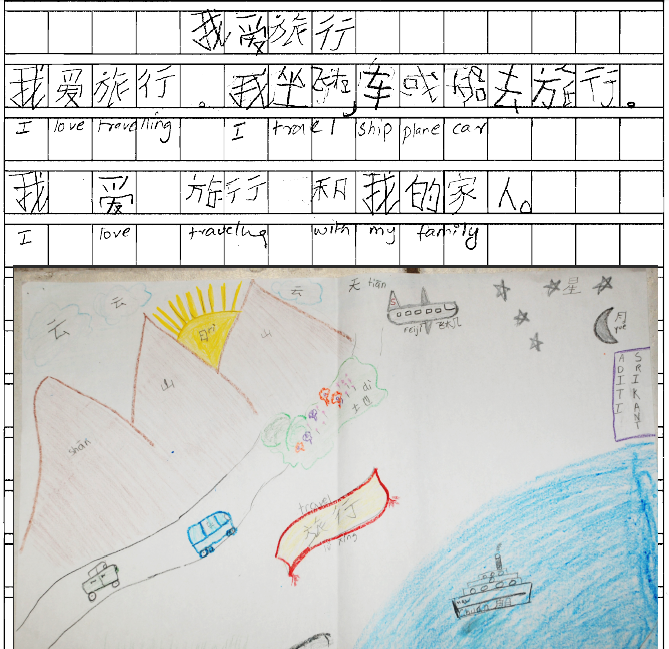 我爱旅行
我爱旅行。我坐飞机,车或船去旅行。
I love travelling I travel ship plane car
我 爱 旅行 和我的家人。
I love traveling with my family
云 云 云 天 tiān
星
月
yuè
日 rì
山
山
shān
feijī 飞机
土地 dì
ADITI
SRIKANT
travel
旅行
lǚ xíng
chuán 船